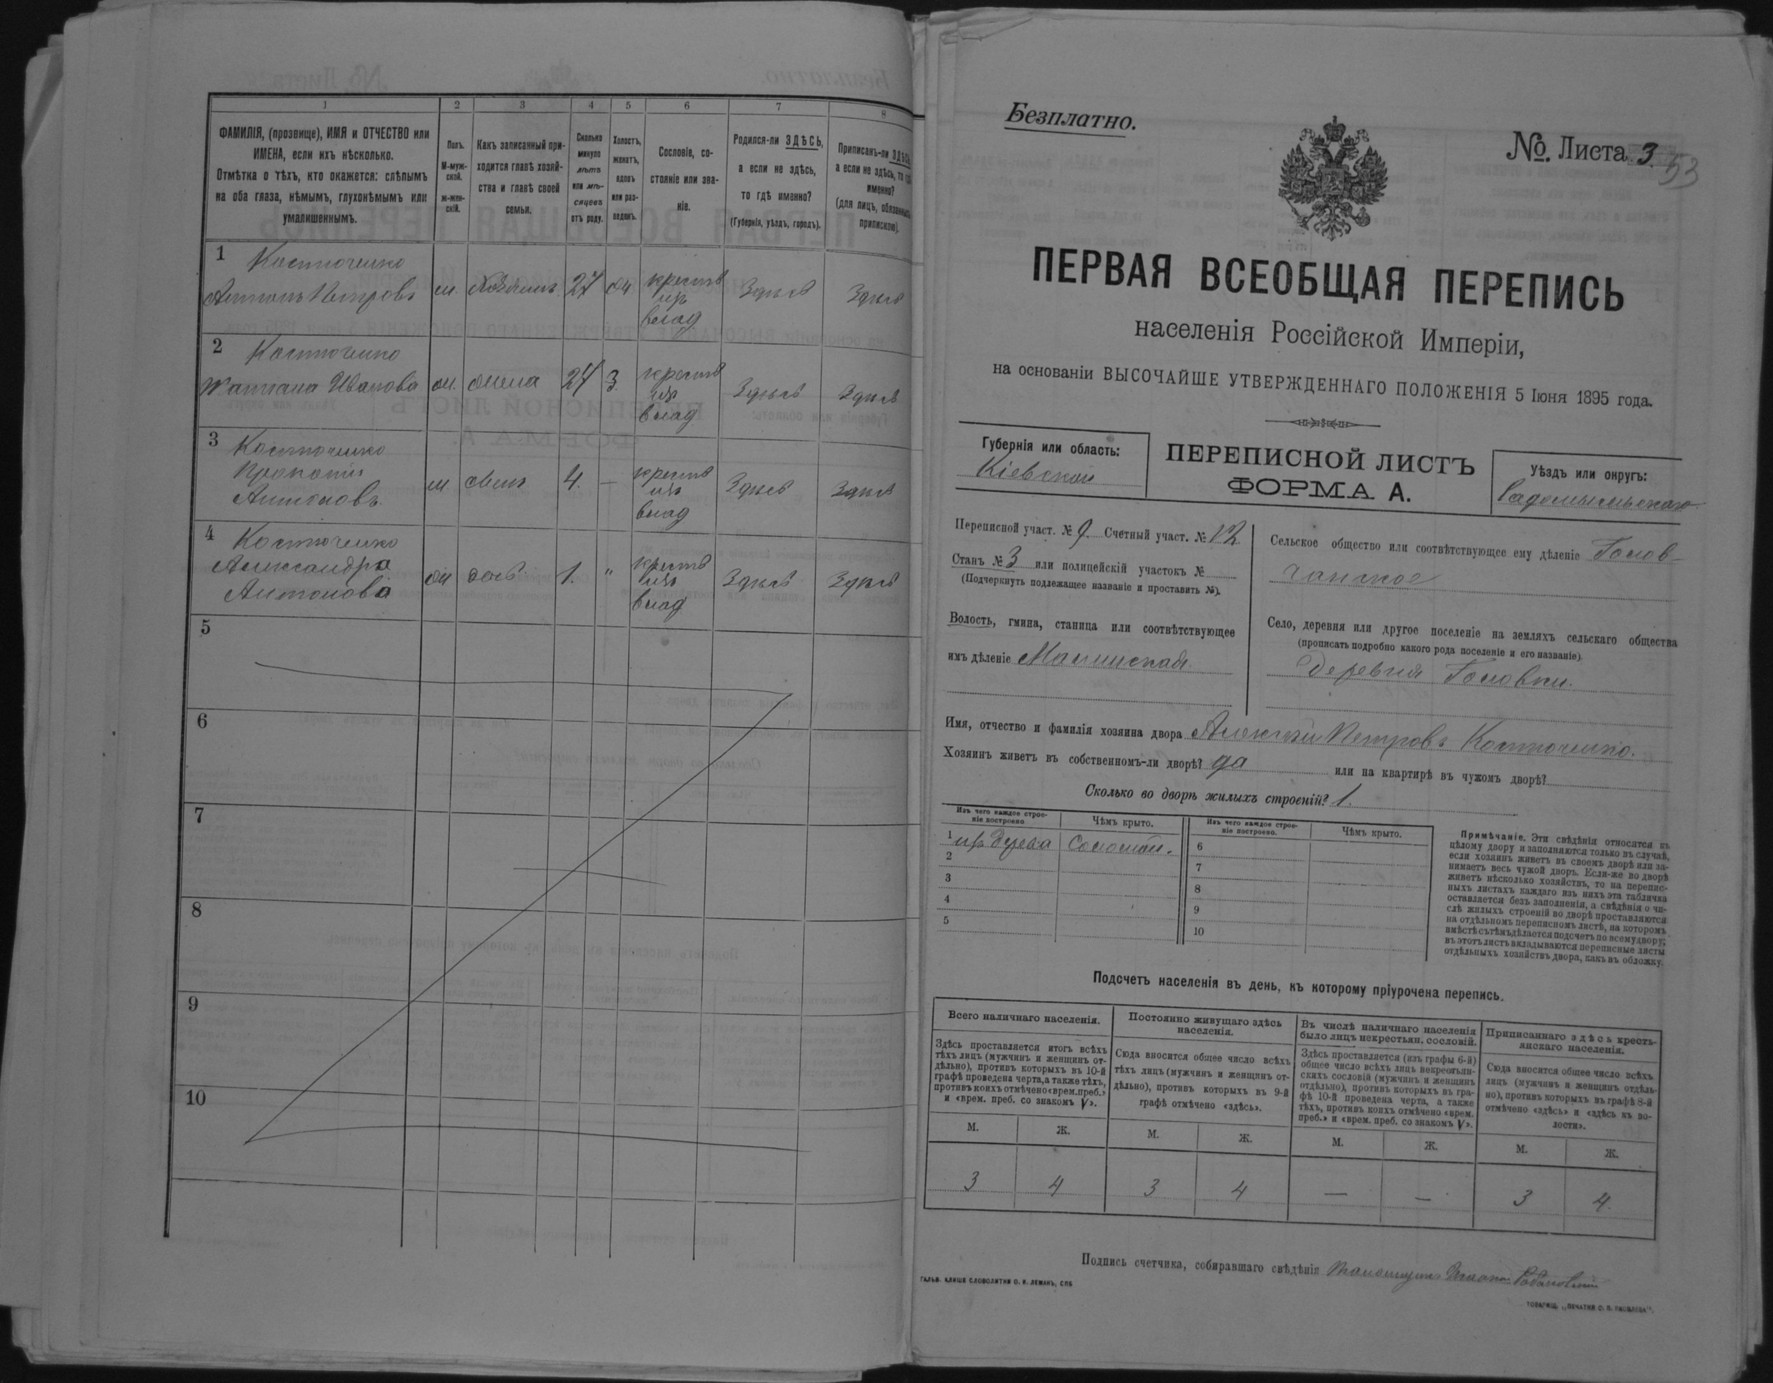 1
2
3
4
5
6
7
8
ФАМИЛІЯ, (прозвище), ИМЯ и ОТЧЕСТВО или
ИМЕНА, если ихъ нѣсколько.
Отмѣтка о тѣхъ, кто окажется: слѣпымъ
на оба глаза, нѣмымъ, глухонѣмымъ или
умалишеннымъ.
Полъ.
М-муж-
ской.
ж-жен-
скій.
Какъ записанный при-
ходится главѣ хозяй-
ства и главѣ своей
семьи.
Сколько
минуло
лѣтъ
или мѣ-
сяцевъ
отъ роду.
Холостъ,
женатъ,
вдовъ
или раз-
веденъ.
Сословіе, со-
стояніе или зва-
ніе.
Родился-ли ЗДѢСЬ,
а если не здѣсь,
то гдѣ именно?
(Губернія, уѣздъ, городъ).
Приписанъ-ли ЗДѢСЬ,
а если не здѣсь, то гдѣ
именно?
(для лицъ, обязанныхъ
припискою).
1
Костюченко
Антонъ Петровъ
м.
хозяинъ
27
крестъ
изъ
влад
Здѣсь
Здѣсь
2
Костюченко
Татіана Иванова
жена
24
З
крест
изъ
влад
Здѣсь
Здѣсь
3
Костюченко
Прокопій
Антоновъ
м
сынъ
4.
—
крест
изъ
влад
Здѣсь
Здѣсь
4
Костюченко
Александра
Антонова
дочь
1.
"
крест
изъ
влад
Здѣсь
Здѣсь
5
6
7
8
9
10
Безплатно.
№ Листа 3
53
ПЕРВАЯ ВСЕОБЩАЯ ПЕРЕПИСЬ
населенія Россійской Имперіи,
на основаніи ВЫСОЧАЙШЕ УТВЕРЖДЕННАГО ПОЛОЖЕНІЯ 5 Іюня 1895 года.
Губернія или область:
Кіевской
ПЕРЕПИСНОЙ ЛИСТЪ
ФОРМА А.
Уѣздъ или округъ:
Радомысльскаго
Переписной участ. № 9. Счетный участ. № 12
Станъ № 3 или полицейскій участокъ №
(Подчеркнуть подлежащее названіе и проставить №).
Волость, гмина, станица или соотвѣтствующее
имъ дѣленіе Малинская
Сельское общество или соотвѣтствующее ему дѣленіе Голов-
чанское
Село, деревня или другое поселеніе на земляхъ сельскаго общества
(прописать подробно какого рода поселеніе и его названіе).
Деревня Головки.
Имя, отчество и фамилія хозяина двора Алексѣй Петровъ Костюченко.
Хозяинъ живетъ въ собственномъ-ли дворѣ? да или на квартирѣ въ чужомъ дворѣ?
Сколько во дворѣ жилыхъ строеній? 1.
Изъ чего каждое строе-
ніе построено
Чѣмъ крыто.
Изъ чего каждое строе-
ніе построено.
Чѣмъ крыто.
1 изъ дерева Соломой.
2
3
4
5
6
7
8
9
10
Примѣчаніе. Эти свѣдѣнія относятся къ
цѣлому двору и заполняются только въ случаѣ,
если хозяинъ живетъ въ своемъ дворѣ или за-
нимаетъ весь чужой дворъ. Если-же во дворѣ
живетъ нѣсколько хозяйствъ, то на перепис-
ныхъ листахъ каждаго изъ нихъ эта табличка
оставляется безъ заполненія, а свѣдѣнія о чи-
слѣ жилыхъ строеній во дворѣ проставляются
на отдѣльномъ переписномъ листѣ, на которомъ
вмѣстѣ съ тѣмъ дѣлается подсчетъ по всему двору;
въ этотъ листъ вкладываются переписные листы
отдѣльныхъ хозяйствъ двора, какъ въ обложку.
Подсчетъ населенія въ день, къ которому пріурочена перепись.
Всего наличнаго населенія.
Здѣсь проставляется итогъ всѣхъ
тѣхъ лицъ (мужчинъ и женщинъ от-
дѣльно), противъ которыхъ въ 10-й
графѣ проведена черта, а также тѣхъ,
противъ коихъ отмѣчено «врем. преб.»
и «врем. преб. со знакомъ V».
Постоянно живущаго здѣсь
населенія.
Сюда вносится общее число всѣхъ
тѣхъ лицъ (мужчинъ и женщинъ от-
дѣльно), противъ которыхъ въ 9-й
графѣ отмѣчено «здѣсь».
Въ числѣ наличнаго населенія
было лицъ некрестьян. сословій.
Здѣсь проставляется (изъ графы 6-й)
общее число всѣхъ лицъ некрестьян-
скихъ сословій (мужчинъ и женщинъ
отдѣльно), противъ которыхъ въ гра-
фѣ 10-й проведена черта, а также
тѣхъ, противъ коихъ отмѣчено «врем.
преб.» и «врем. преб. со знакомъ V».
Приписаннаго здѣсь кресть-
янскаго населенія.
Сюда вносится общее число всѣхъ
лицъ (мужчинъ и женщинъ отдѣль-
но), противъ которыхъ въ графѣ 8-й
отмѣчено «здѣсь» и «здѣсь въ во-
лости».
М. Ж. М. Ж. М. Ж. М. Ж.
3 4 3 4 — — 3 4
Подпись счетчика, собиравшаго свѣдѣнія
ГАЛЬВ. КЛИШЕ СЛОВОЛИТНИ О. И. ЛЕМАНЪ, СПБ